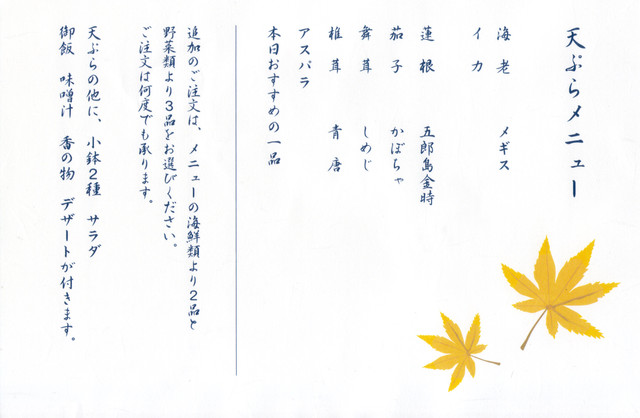 天ぷらメニュー
海老　メギス
イカ
蓮根　五郎島金時
茄子　かぼちゃ
舞茸　しめじ
椎茸　青唐
アスパラ
本日おすすめの一品
追加のご注文は、メニューの海鮮類より2品と
野菜類より3品をお選びください。
ご注文は何度でも承ります。
天ぷらの他に、小鉢2種　サラダ
御飯　味噌汁　香の物　デザートが付きます。